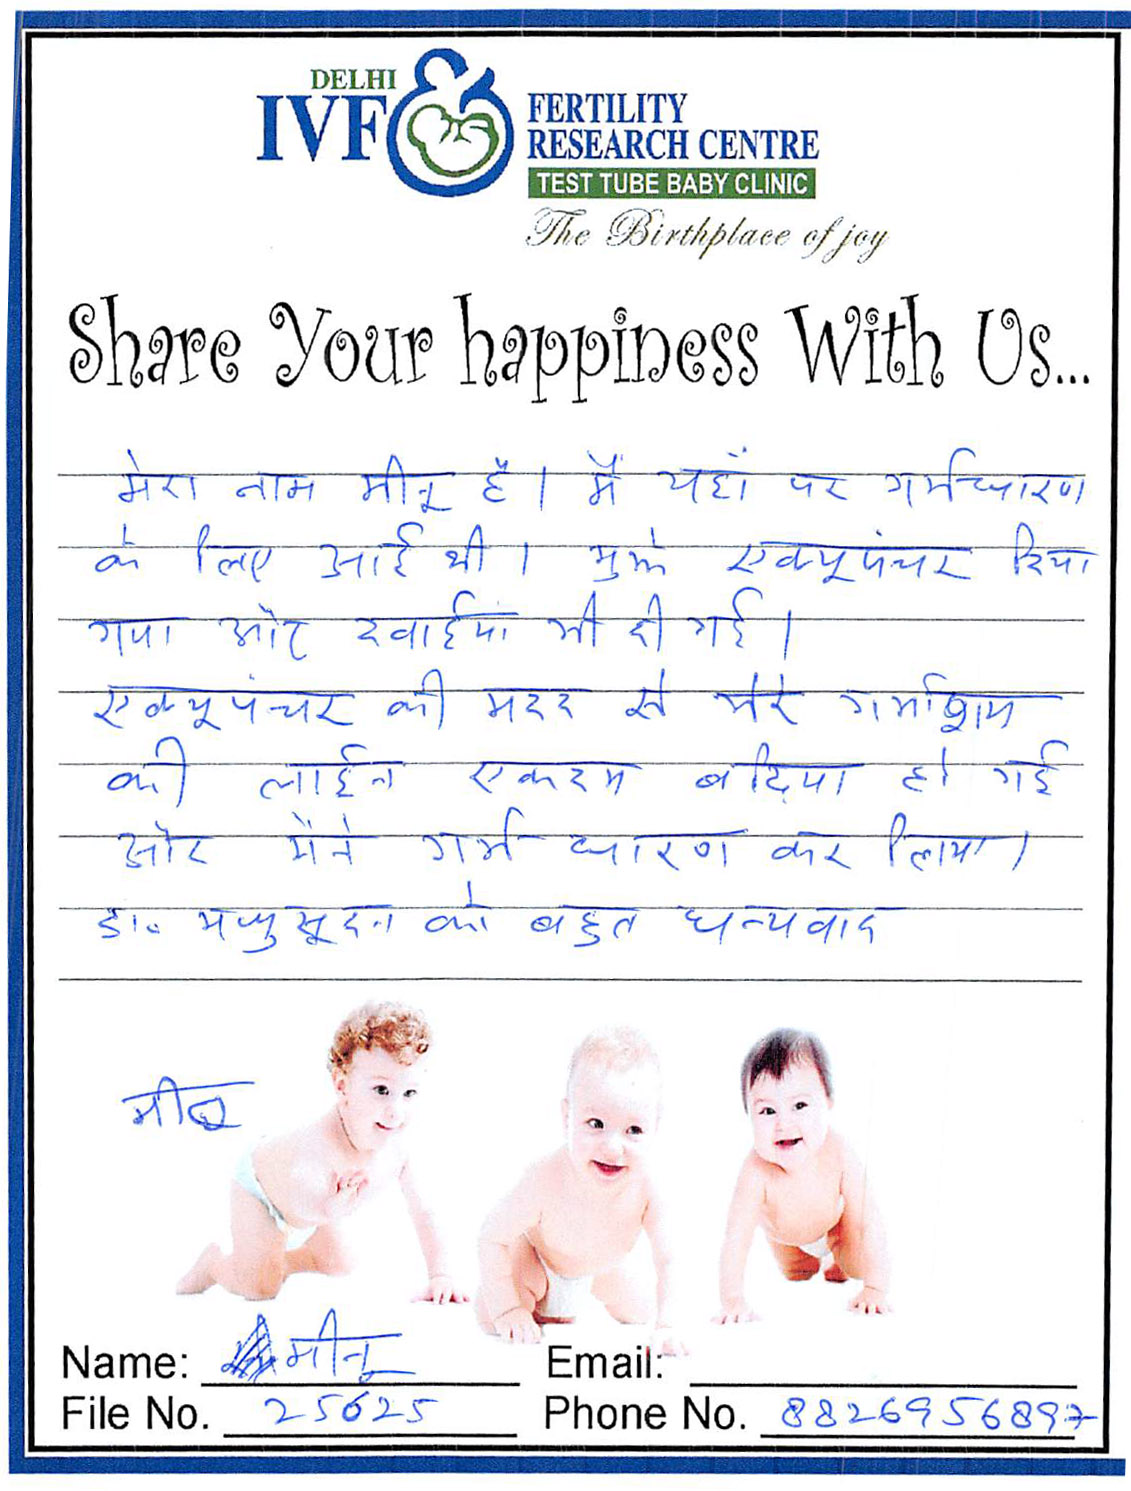 DELHI
IVF
FERTILITY
RESEARCH CENTRE
TEST TUBE BABY CLINIC
The Birthplace of joy
Share Your happiness With Us...
मेरा नाम मीनू है। मैं यहाँ पर गर्भधारण
के लिए आई थी। मुझे एक्यूपंचर दिया
गया और दवाईयां भी दी गई।
एक्यूपंचर की मदद से मेरे गर्भाशय
की लाईन एकदम बढ़िया हो गई
और मैंने गर्भ धारण कर लिया।
डा. मधुसूदन को बहुत धन्यवाद
मीनू
Name: मीनू Email:
File No. 25625 Phone No. 8826956897